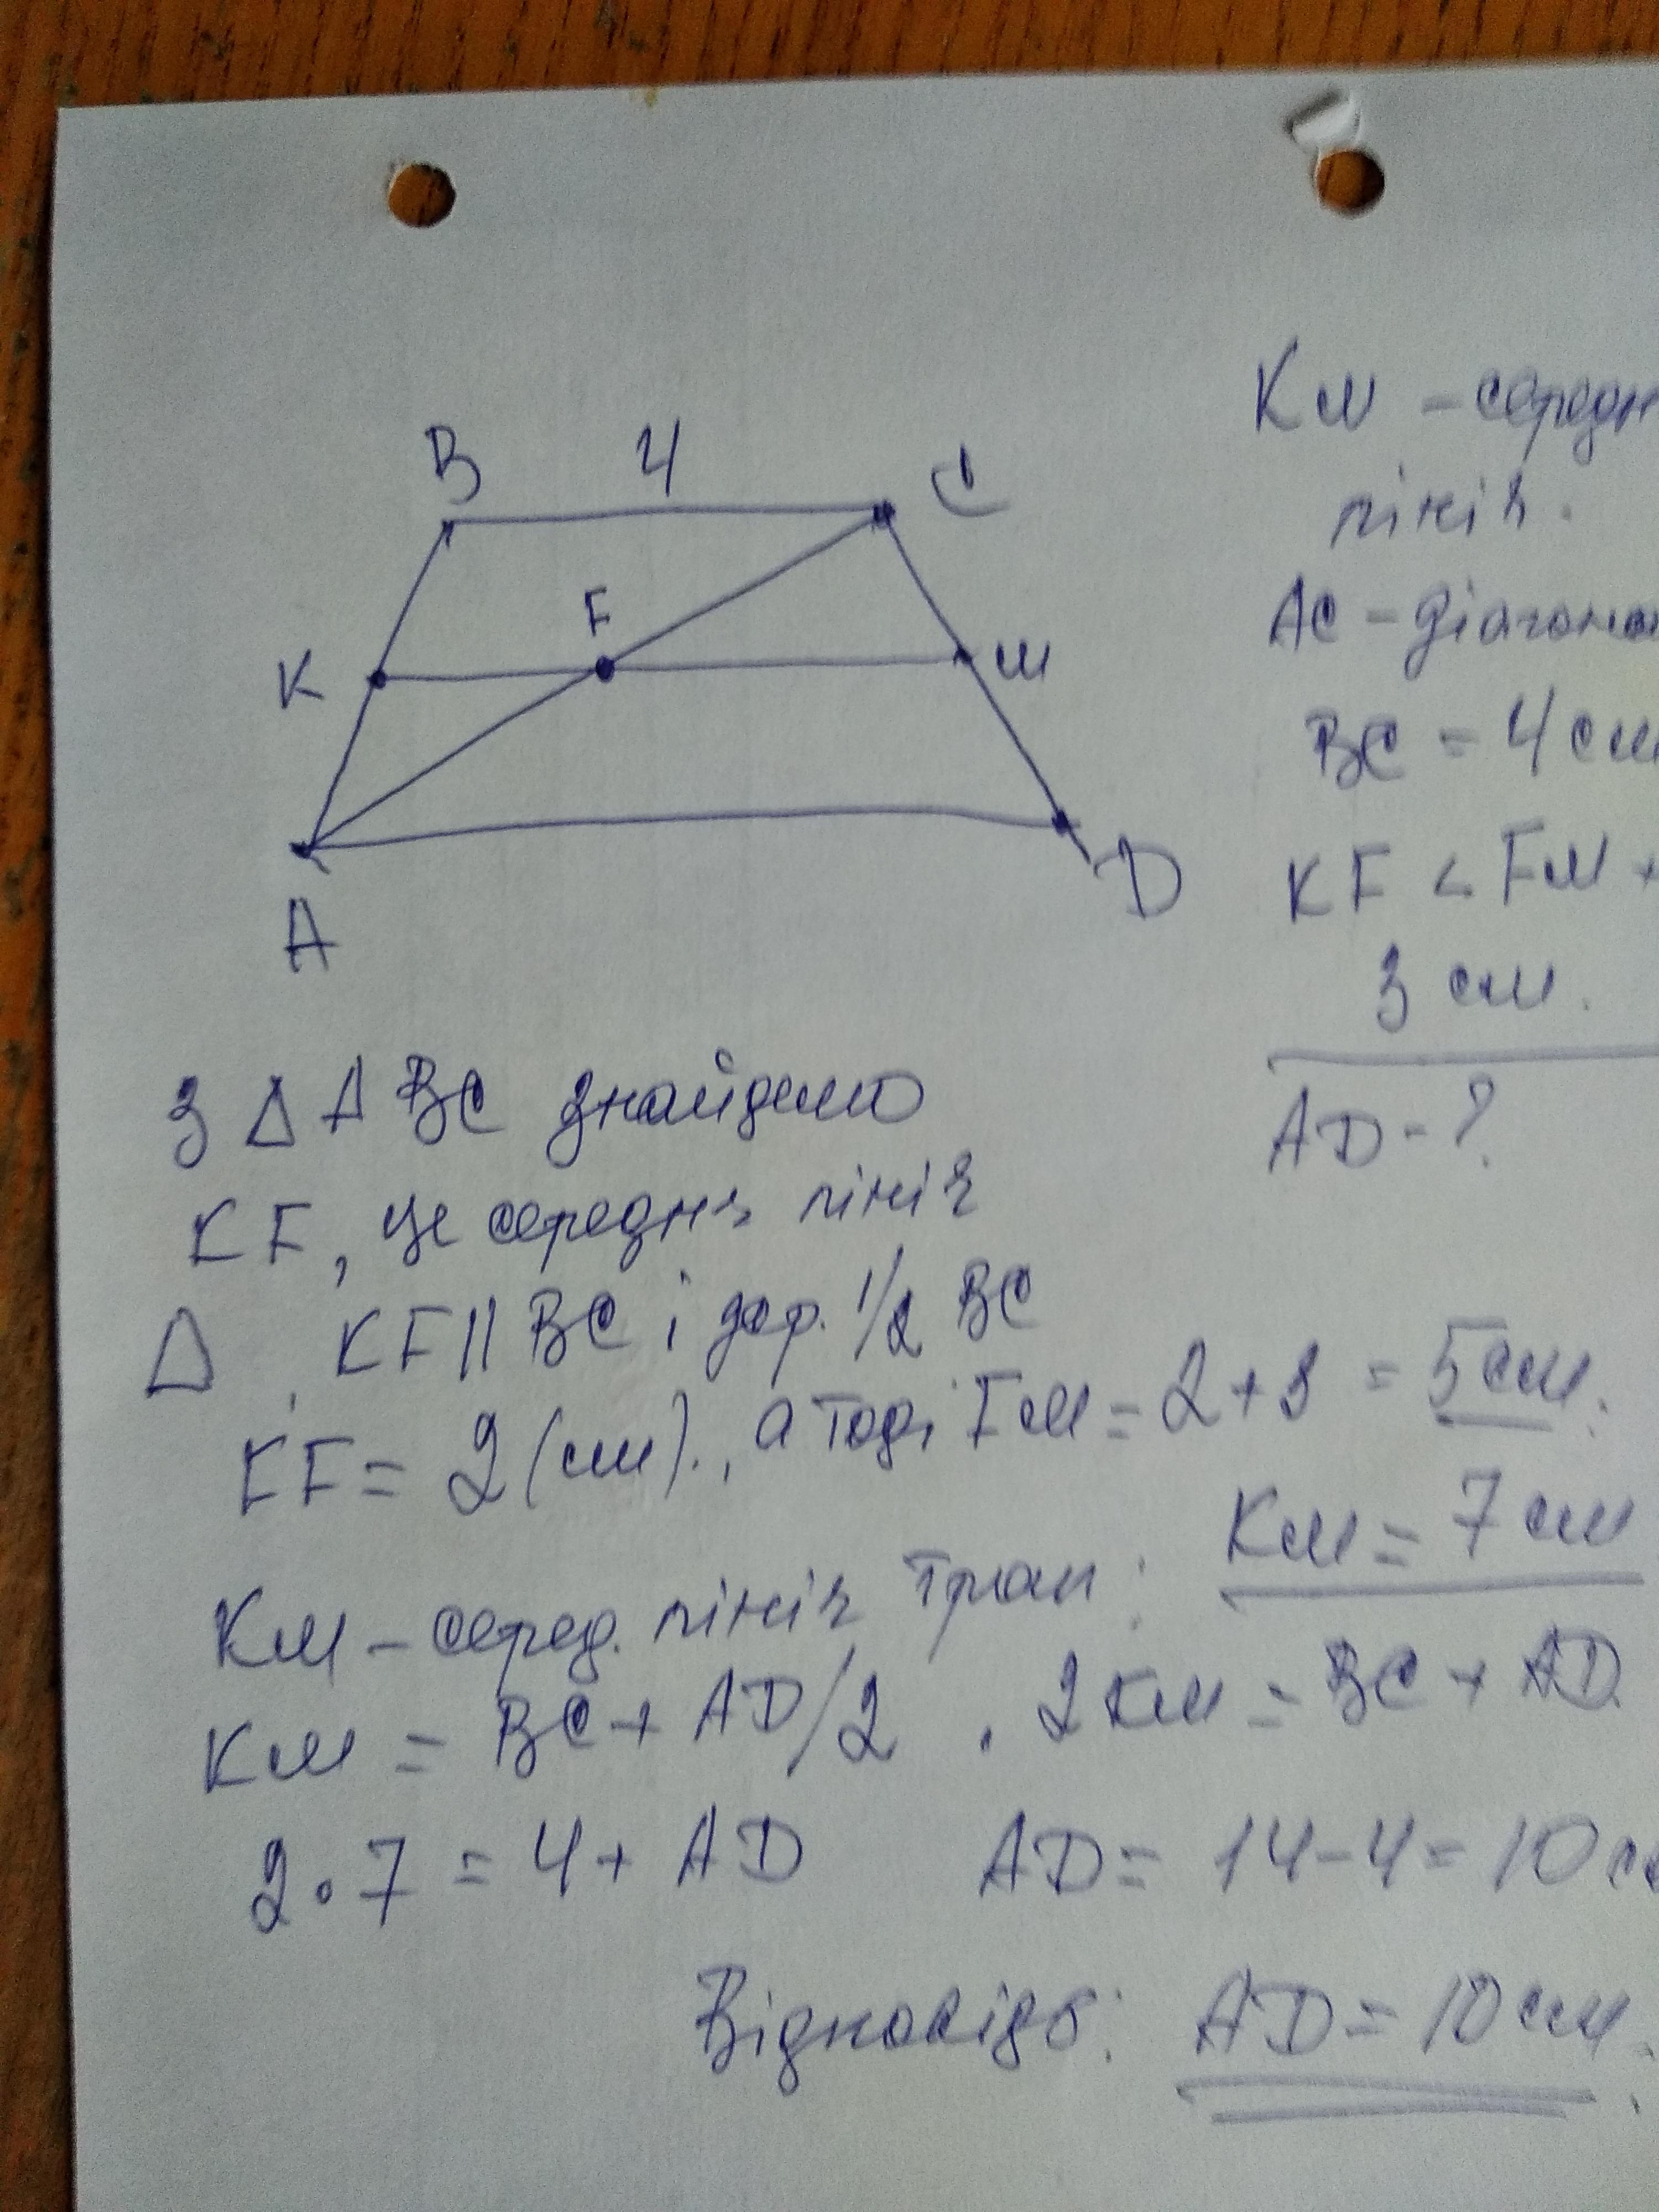 B 4 C
K F M
A D
KM - середн
лінія.
AC - діагона
BC = 4 см
KF < FM +
3 см.
AD - ?
З Δ ABC знайдемо
KF, це середня лінія
Δ, KF || BC і дор. 1/2 BC
KF = 2 (см)., а тоді FM = 2 + 3 = 5 см.
KM = 7 см
KM - серед. лінія трап:
KM = BC + AD/2 . 2KM = BC + AD.
2 · 7 = 4 + AD AD = 14 - 4 = 10 с
Відповідь: AD = 10 см.